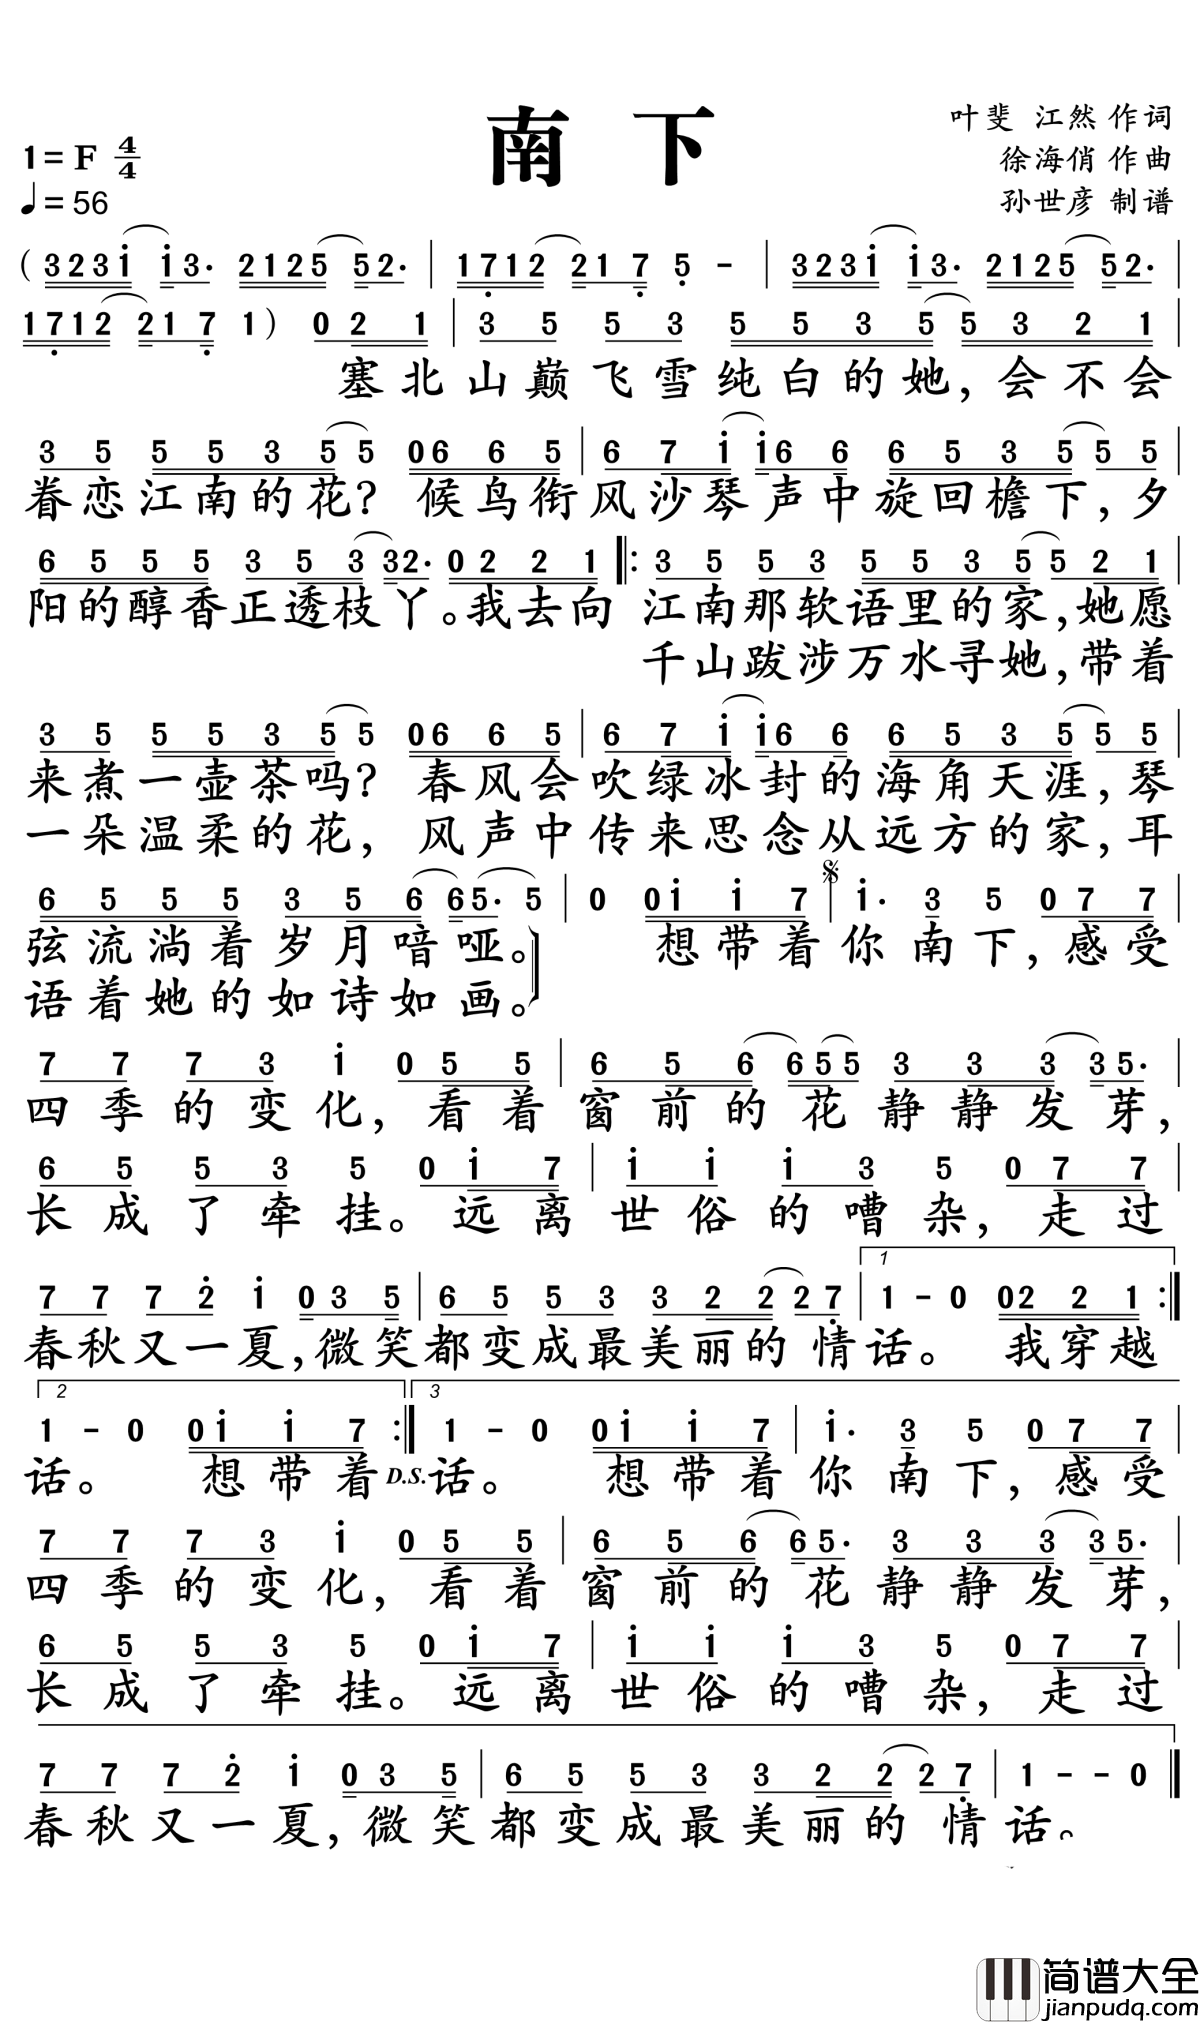 南 下
叶斐 江然 作词
徐海俏 作曲
孙世彦 制谱
1=F 4/4
♩=56
( 3 2 3 i i 3· 2 1 2 5 5 2· | 1 7 1 2 2 1 7 5 - | 3 2 3 i i 3· 2 1 2 5 5 2· |
1 7 1 2 2 1 7 1 ) 0 2 1 | 3 5 5 3 5 5 3 5 5 3 2 1 |
塞北山巅飞雪纯白的她,会不会
3 5 5 5 3 5 5 0 6 6 5 | 6 7 i i 6 6 6 5 3 5 5 5 |
眷恋江南的花? 候鸟衔风沙琴声中旋回檐下,夕
6 5 5 5 3 5 3 3 2· 0 2 2 1 ‖: 3 5 5 3 5 5 3 5 5 2 1 |
阳的醇香正透枝丫。我去向 江南那软语里的家,她愿
千山跋涉万水寻她,带着
3 5 5 5 3 5 5 0 6 6 5 | 6 7 i i 6 6 6 5 3 5 5 5 |
来煮一壶茶吗? 春风会吹绿冰封的海角天涯,琴
一朵温柔的花, 风声中传来思念从远方的家,耳
6 5 5 5 3 5 6 6 5· 5 | 0 0 i i 7 | i· 3 5 0 7 7 |
弦流淌着岁月喑哑。 想带着你南下,感受
语着她的如诗如画。
7 7 7 3 i 0 5 5 | 6 5 6 6 5 5 3 3 3 3 5· |
四季的变化,看着窗前的花静静发芽,
6 5 5 3 5 0 i 7 | i i i 3 5 0 7 7 |
长成了牵挂。远离世俗的嘈杂,走过
1
7 7 7 2 i 0 3 5 | 6 5 5 3 3 2 2 2 7 | 1 - 0 0 2 2 1 :‖
春秋又一夏,微笑都变成最美丽的情话。 我穿越
2 3
1 - 0 0 i i 7 :‖ 1 - 0 0 i i 7 | i· 3 5 0 7 7 |
话。 想带着 D.S. 话。 想带着你南下,感受
7 7 7 3 i 0 5 5 | 6 5 6 6 5· 3 3 3 3 5· |
四季的变化,看着窗前的花静静发芽,
6 5 5 3 5 0 i 7 | i i i 3 5 0 7 7 |
长成了牵挂。远离世俗的嘈杂,走过
7 7 7 2 i 0 3 5 | 6 5 5 3 3 2 2 2 7 | 1 - - 0 ‖
春秋又一夏,微笑都变成最美丽的情话。
简谱大全
jianpudq.com